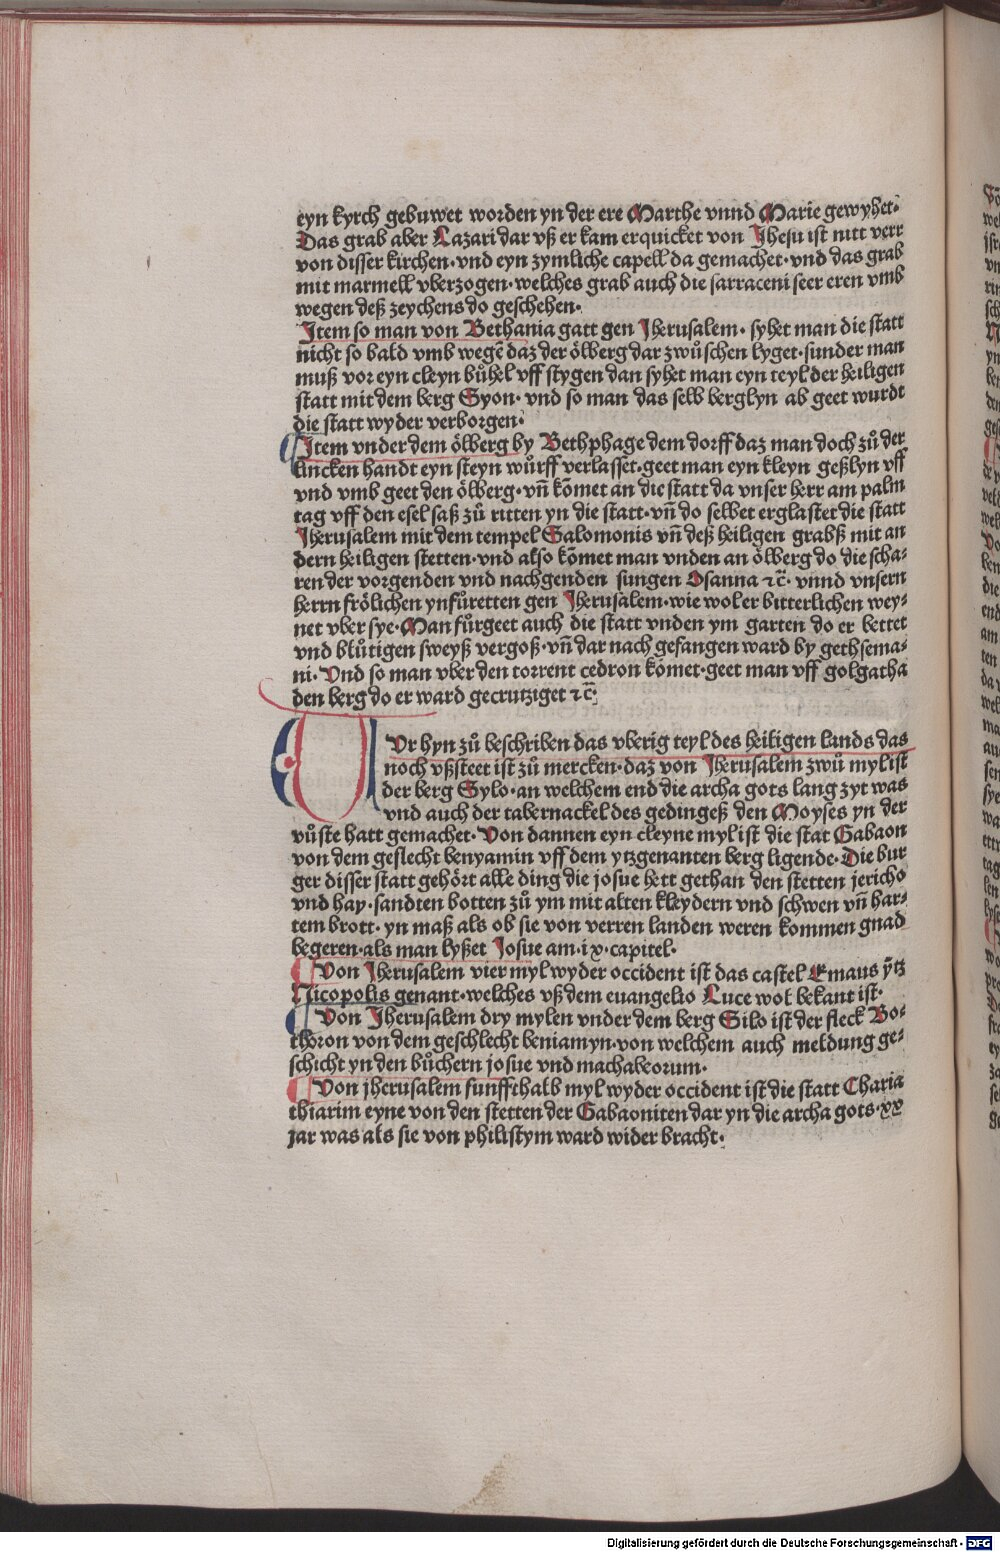 eyn kyrch gebuwet worden yn der ere Marthe vnnd Marie gewyhet·
Das grab aber Lazari dar vß er kam erquicket von Jhesu ist nitt verr
von disser kirchen·vnd eyn zymliche capell da gemachet·vnd das grab
mit marmell vberzogen·welches grab auch die sarraceni seer eren vmb
wegen deß zeychens do geschehen·
Jtem so man von Bethania gatt gen Jherusalem· syhet man die statt
nicht so bald vmb wegē daz der ölberg dar zwůschen lyget·sunder man
muß vor eyn cleyn bůhel vff stygen dan syhet man eyn teyl der heiligen
statt mit dem berg Syon· vnd so man das selb berglyn ab geet wurdt
die statt wyder verborgen·
Jtem vnder dem ölberg by Bethphage dem dorff daz man doch zů der
lincken handt eyn steyn wůrff verlasset·geet man eyn kleyn geßlyn vff
vnd vmb geet den ölberg·vn̄ kōmet an die statt da vnser herr am palm
tag vff den esel saß zů ritten yn die statt·vn̄ do selbet erglastet die statt
Jherusalem mit dem tempel Salomonis vn̄ deß heiligen grabß mit an
dern heiligen stetten·vnd also kōmet man vnden an ölberg do die scha⸗
ren der vorgenden vnd nachgenden sungen Osanna ⁊c̄· vnnd vnsern
herrn frölichen ynfůretten gen Jherusalem·wie wol er bitterlichen wey⸗
net vber sye·Man fůrgeet auch die statt vnden ym garten do er bettet
vnd blůtigen sweyß vergoß·vn̄ dar nach gefangen ward by gethsema⸗
ni·Vnd so man vber den torrent cedron kōmet·geet man vff golgatha
den berg do er ward gecrutziget ⁊c̄·
VVr hyn zů beschriben das vberig teyl des heiligen lands das
noch vßsteet ist zů mercken·daz von Jherusalem zwů myl ist
der berg Sylo·an welchem end die archa gots lang zyt was
vnd auch der tabernackel des gedingeß den Moyses yn der
vůste hatt gemachet·Von dannen eyn cleyne myl ist die stat Gabaon
von dem geslecht benyamin vff dem ytzgenanten berg ligende·Die bur
ger disser statt gehört alle ding die josue hett gethan den stetten jericho
vnd hay·sandten botten zů ym mit alten kleydern vnd schwen vn̄ har⸗
tem brott·yn maß als ob sie von verren landen weren kommen gnad
begeren·als man lyßet Josue am·ix·capitel·
Von Jherusalem vier myl wyder occident ist das castel Emaus ȳtz
Nicopolis genant·welches vß dem euangelio Luce wol bekant ist·
Von Jherusalem dry mylen vnder dem berg Silo ist der fleck Bo⸗
thoron von dem geschlecht beniamyn·von welchem auch meldung ge⸗
schicht yn den bůchern josue vnd machabeorum·
Von jherusalem funffthalb myl wyder occident ist die statt Charia
thiarim eyne von den stetten der Gabaoniten dar yn die archa gots·xx
jar was als sie von philistym ward wider bracht·
Digitalisierung gefördert durch die Deutsche Forschungsgemeinschaft - DFG